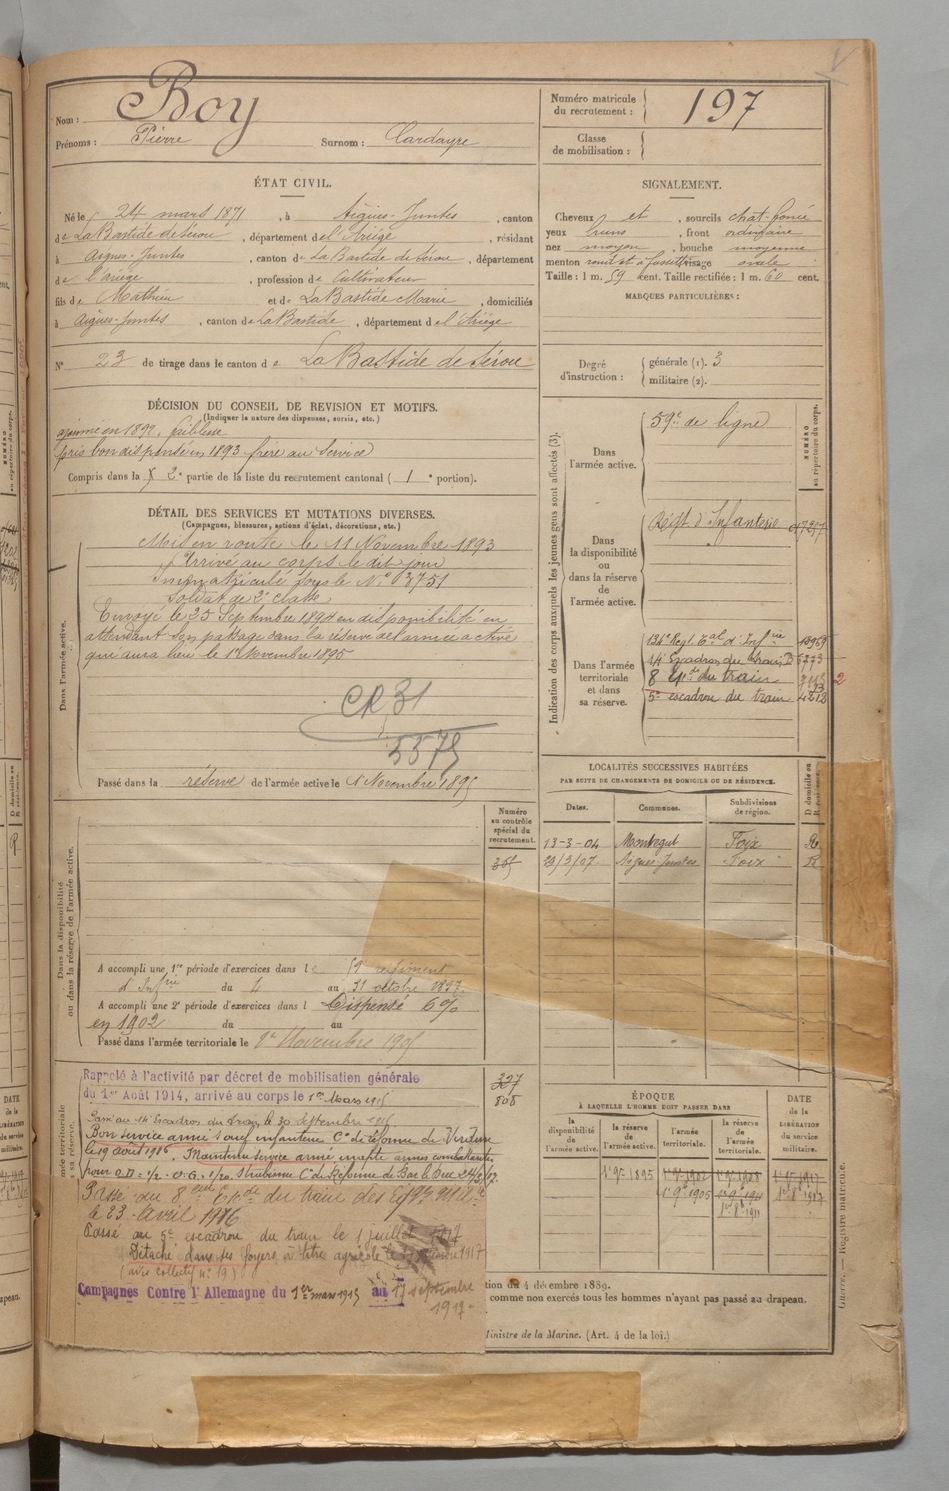 Nom : Boy
Prénoms : Pierre Surnom : Cardayre
Numéro matricule du recrutement : 197
Classe de mobilisation :
ÉTAT CIVIL.
Né le 24 mars 1871, à Aigues-Juntes, canton
de La Bastide de Sérou, département de l'Ariège, résidant
à Aigues-Juntes, canton de La Bastide de Sérou, département
de l'Ariège, profession de Cultivateur
fils de Mathieu et de La Bastide Marie, domiciliés
à Aigues-Juntes, canton de La Bastide, département de l'Ariège
N° 23 de tirage dans le canton de La Bastide de Sérou
SIGNALEMENT.
Cheveux et, sourcils chat-foncé
yeux bruns, front ordinaire
nez moyen, bouche moyenne
menton rond et à fossette visage ovale
Taille : 1 m. 59 cent. Taille rectifiée : 1 m. 60 cent.
MARQUES PARTICULIÈRES :
Degré d'instruction : générale (1). 3
militaire (2).
DÉCISION DU CONSEIL DE REVISION ET MOTIFS.
(Indiquer la nature des dispenses, sursis, etc.)
ajourné en 1892, faiblesse
pris bon dispensé en 1893 frère au Service
Compris dans la 2e partie de la liste du recrutement cantonal (1e portion).
DÉTAIL DES SERVICES ET MUTATIONS DIVERSES.
(Campagnes, blessures, actions d'éclat, décorations, etc.)
Dans l'armée active.
Mis en route le 11 Novembre 1893
Arrivé au corps le dit jour
Immatriculé sous le N° 3751
Soldat de 2e classe
Envoyé le 25 Septembre 1894 en disponibilité en
attendant son passage dans la réserve de l'armée active
qui aura lieu le 1er Novembre 1895
CR 31
5575
Passé dans la réserve de l'armée active le 1 Novembre 1895
Indication des corps auxquels les jeunes gens sont affectés (3).
NUMÉRO au répertoire du corps.
Dans l'armée active. 59e de ligne
Dans la disponibilité ou dans la réserve de l'armée active.
Régt d'Infanterie
Dans l'armée territoriale et dans sa réserve.
134e Régt Eal d'Infrie
14e Escadron du train
8 Eron du train 2
5e escadron du train 4213
LOCALITÉS SUCCESSIVES HABITÉES
PAR SUITE DE CHANGEMENTS DE DOMICILE OU DE RÉSIDENCE.
Dates. Communes. Subdivisions de région.
13-3-04 Montégut Foix R
29/3/07 Aigues Juntes Foix R
Numéro au contrôle spécial du recrutement.
Dans la disponibilité ou dans la réserve de l'armée active.
A accompli une 1re période d'exercices dans le 59 régiment
d'Infrie du 4 au 31 octobre 1897
A accompli une 2e période d'exercices dans l Dispensé 6%
en 1902 du au
Passé dans l'armée territoriale le 1er Novembre 1905
327
808
Rappelé à l'activité par décret de mobilisation générale
du 1er Août 1914, arrivé au corps le 1er Mars 1915
Passé au 14e Escadron du train, le 30 septembre 1915
Bon service armé sauf infanterie Con de réforme de Verdun
le 19 août 1916. Maintenu service armé inapte armes combattantes
pour O.D = 1/2 - O.G = 1/20. Con de Réforme de Bar le Duc
Passé au 8e Eon du train des Eq. Mil.
le 23 Avril 1916
Passé au 5e escadron du train le 1 juillet 1917
Détaché dans ses foyers à titre agricole
(avis collectif n° 19)
Campagnes Contre l'Allemagne du 1er mars 1915 au 17 septembre
1917
ÉPOQUE
À LAQUELLE L'HOMME DOIT PASSER DANS
la disponibilité de l'armée active.
la réserve de l'armée active.
l'armée territoriale.
la réserve de l'armée territoriale.
DATE de la LIBÉRATION du service militaire.
1er 9bre 1895
1er 9bre 1905
tion du 4 décembre 1889.
comme non exercés tous les hommes n'ayant pas passé au drapeau.
Ministre de la Marine. (Art. 4 de la loi.)
Guerre. — Registre matricule.